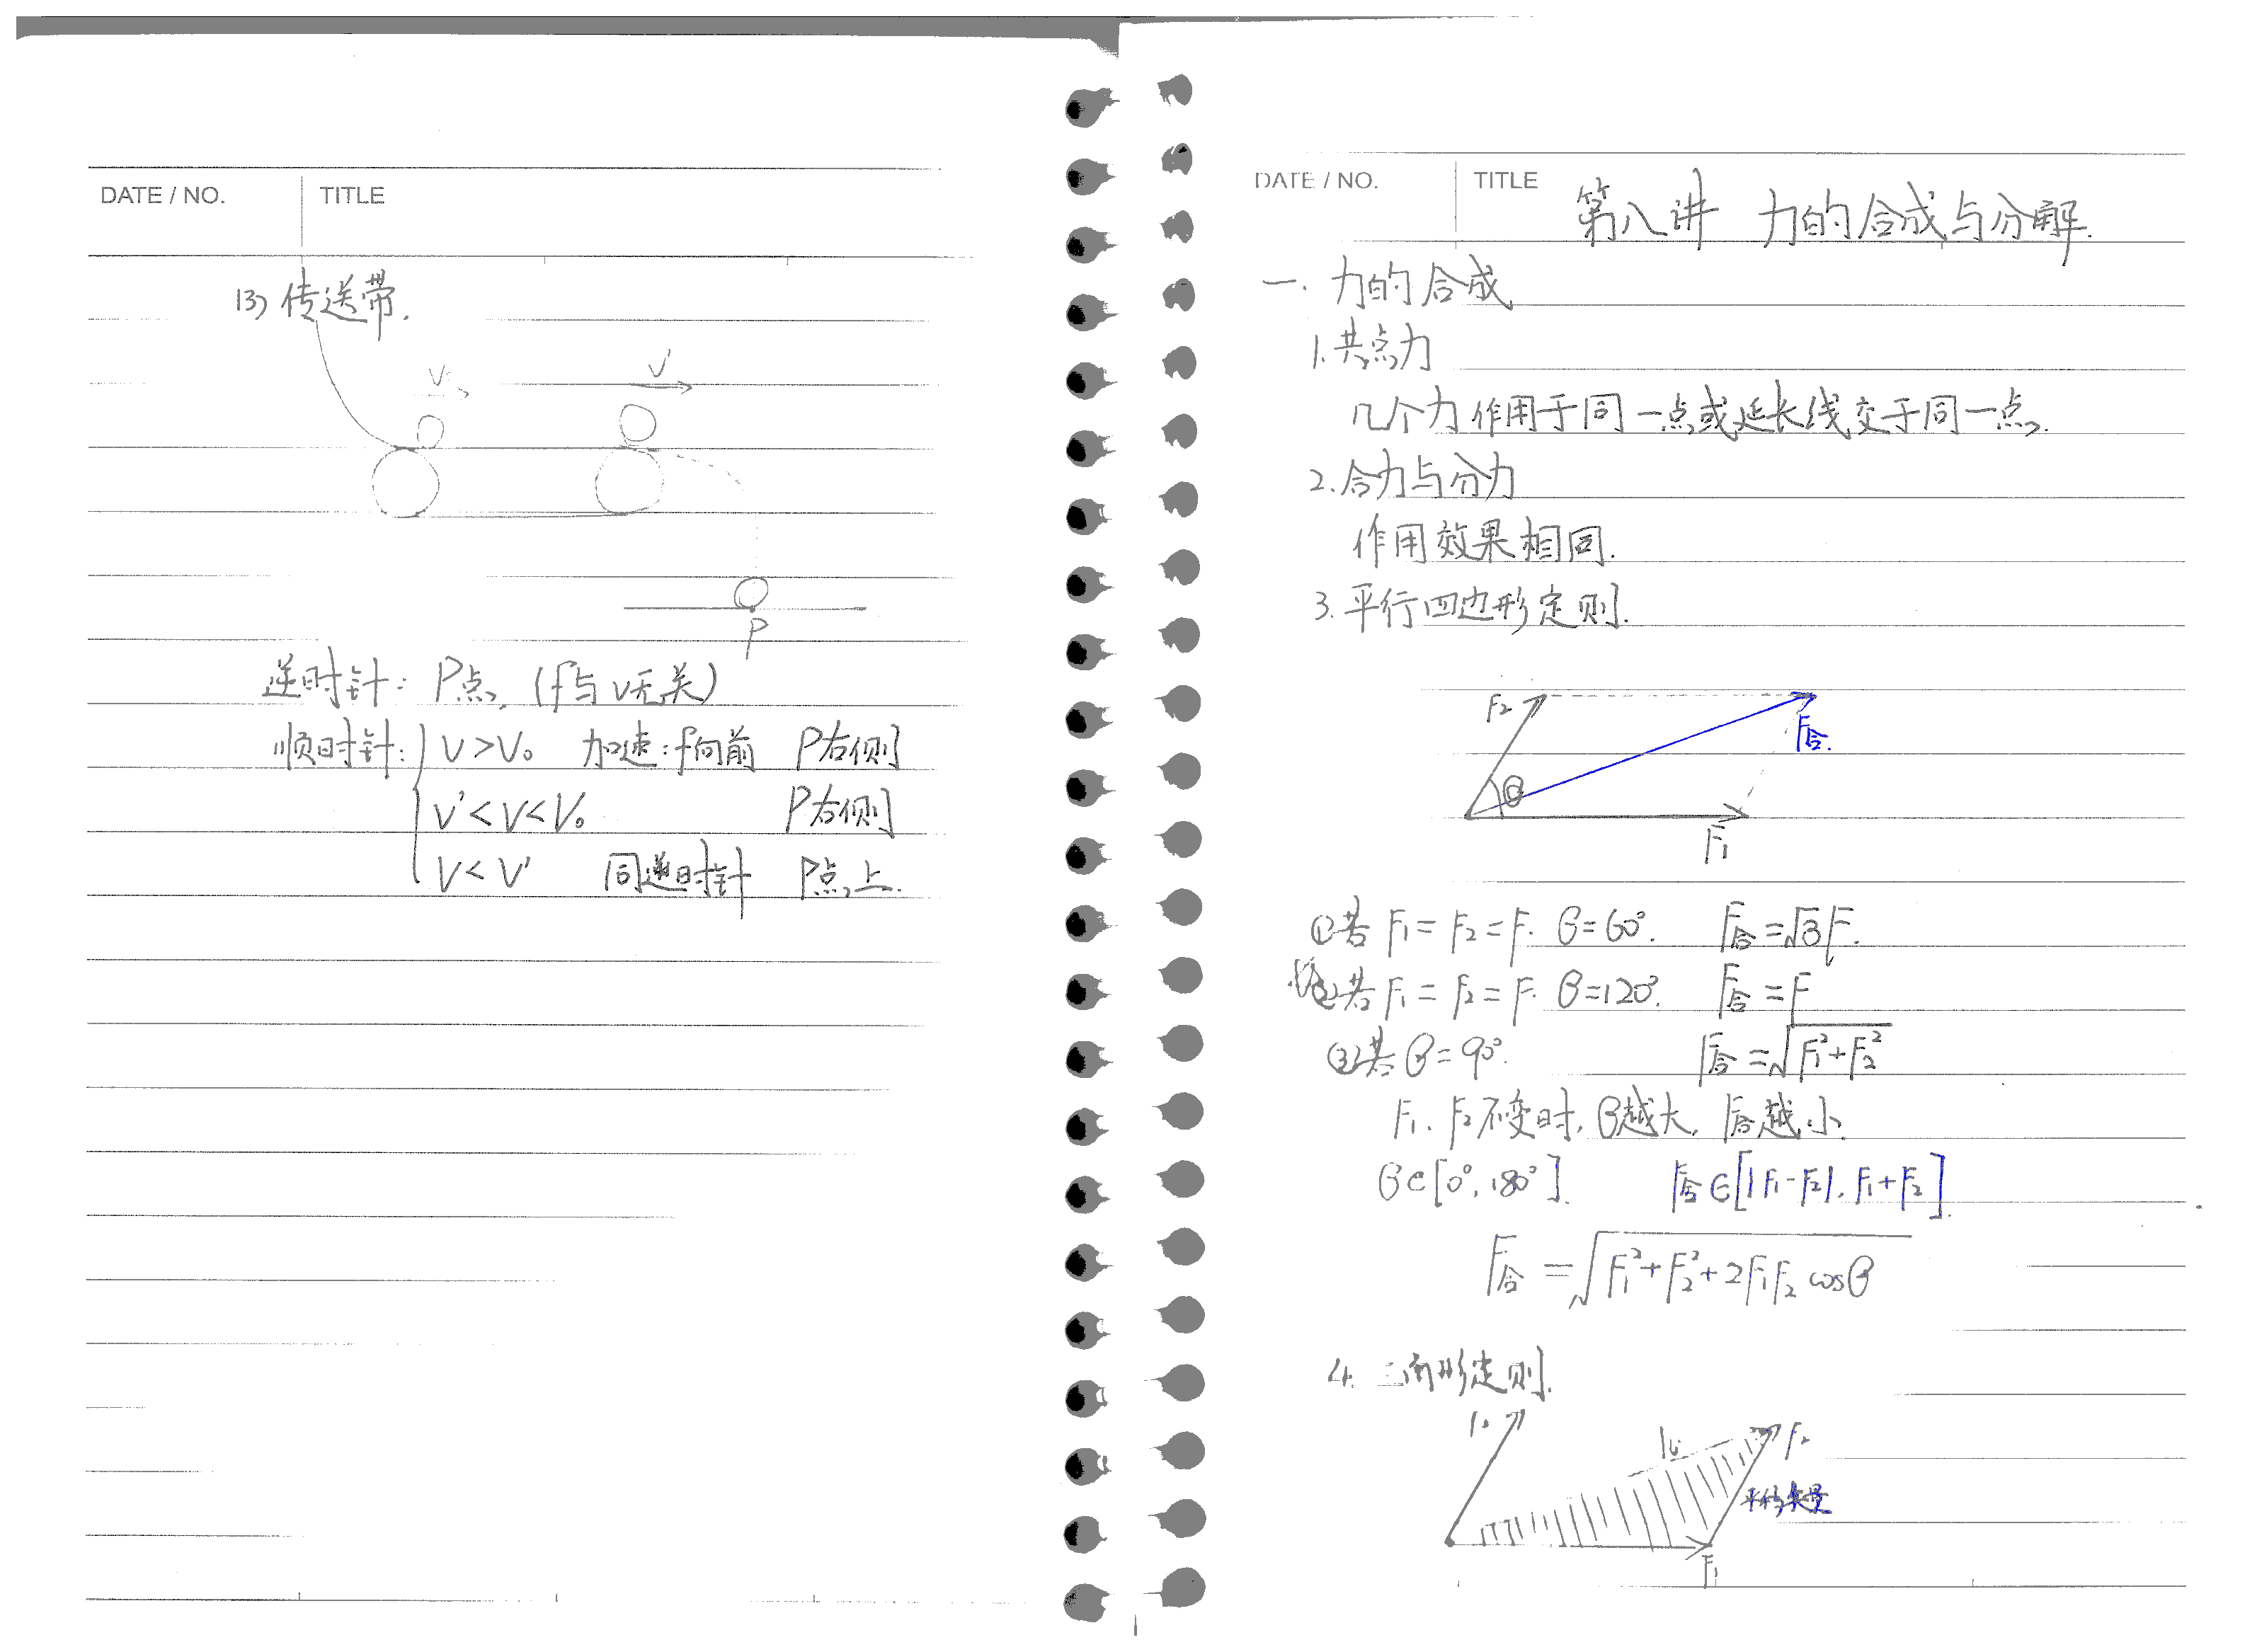 DATE / NO. TITLE
(3) 传送带.
V₀ V'
P
逆时针: P点, (f与v无关)
顺时针: V>V₀ 加速:f向前 P右侧
V'<V<V₀ P右侧
V<V' 同逆时针 P点上.
DATE / NO. TITLE 第八讲 力的合成与分解.
一. 力的合成
1.共点力
几个力作用于同一点或延长线交于同一点.
2.合力与分力
作用效果相同.
3.平行四边形定则.
F₂ F合.
θ
F₁
①若 F₁=F₂=F. θ=60°. F合=√3F.
②若 F₁=F₂=F. θ=120°. F合=F
③若θ=90°. F合=√(F₁²+F₂²)
F₁、F₂不变时, θ越大, F合越小.
θ∈[0°,180°]. F合∈[|F₁-F₂|, F₁+F₂].
F合=√(F₁²+F₂²+2F₁F₂cosθ)
4. 三角形定则.
F₂
平移矢量
F₁